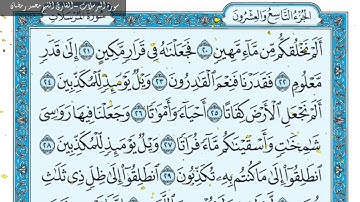 سورة المرسلات - القارئ الشيخ محمد رمضان
سورة المرسلات
الجزء التاسع والعشرون
أَلَمْ نَخْلُقكُّم مِّن مَّاءٍ مَّهِينٍ ٢٠ فَجَعَلْنَاهُ فِي قَرَارٍ مَّكِينٍ ٢١ إِلَىٰ قَدَرٍ
مَّعْلُومٍ ٢٢ فَقَدَرْنَا فَنِعْمَ الْقَادِرُونَ ٢٣ وَيْلٌ يَوْمَئِذٍ لِّلْمُكَذِّبِينَ ٢٤
أَلَمْ نَجْعَلِ الْأَرْضَ كِفَاتًا ٢٥ أَحْيَاءً وَأَمْوَاتًا ٢٦ وَجَعَلْنَا فِيهَا رَوَاسِيَ
شَامِخَاتٍ وَأَسْقَيْنَاكُم مَّاءً فُرَاتًا ٢٧ وَيْلٌ يَوْمَئِذٍ لِّلْمُكَذِّبِينَ ٢٨
انطَلِقُوا إِلَىٰ مَا كُنتُم بِهِ تُكَذِّبُونَ ٢٩ انطَلِقُوا إِلَىٰ ظِلٍّ ذِي ثَلَاثِ